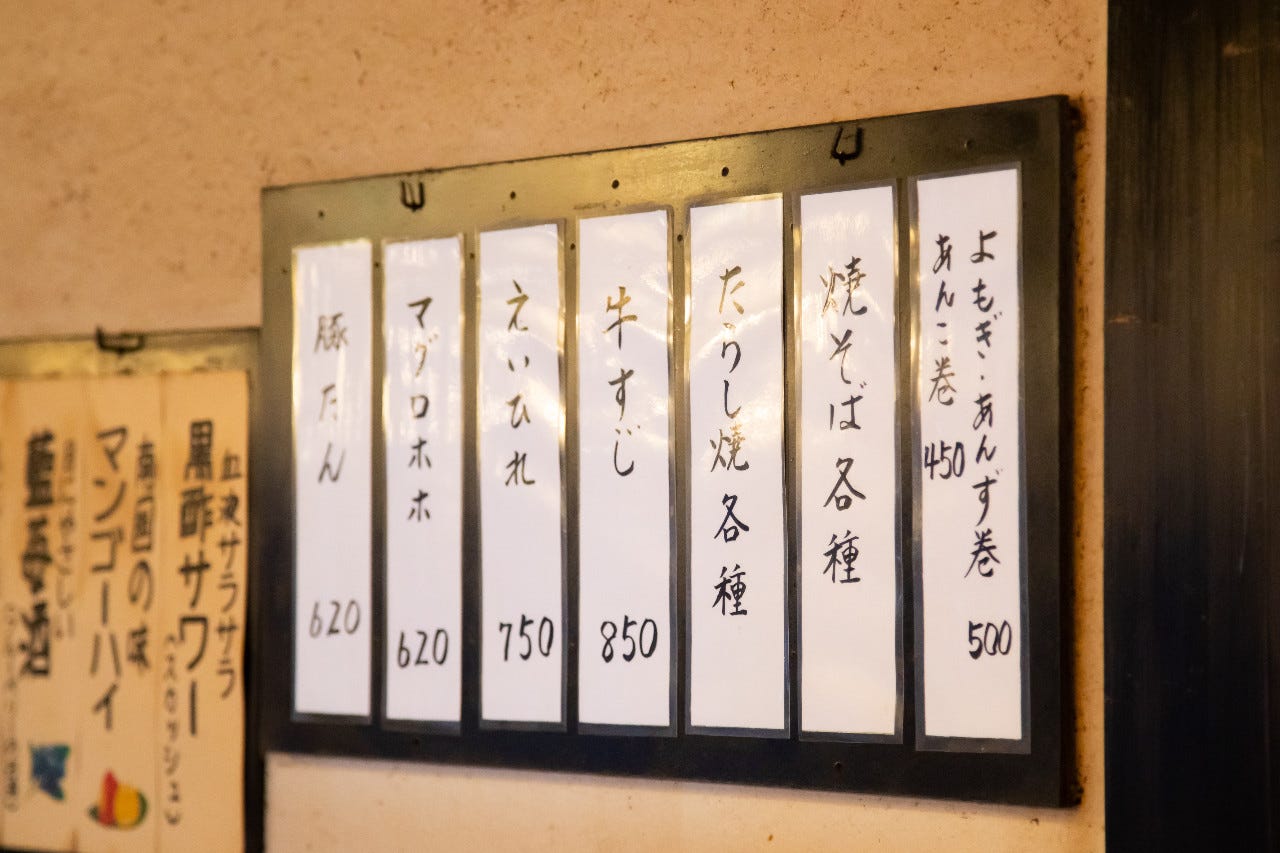 よもぎ・あんず巻 500
あんこ巻 450
焼そば各種
たらし焼各種
牛すじ 850
えいひれ 750
マグロホホ 620
豚たん 620
血液サラサラ
黒酢サワー
南国の味
マンゴーハイ